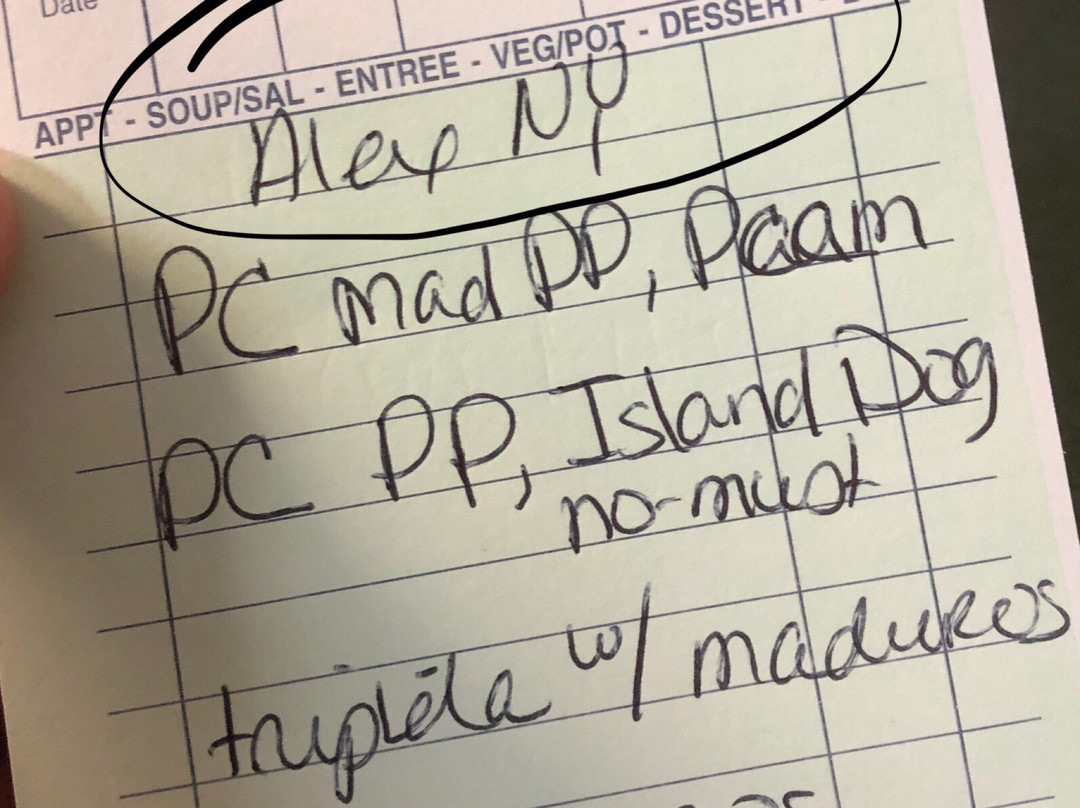 Date
APPT - SOUP/SAL - ENTREE - VEG/POT - DESSERT -
Alex NY
PC mad PP, Paam
PC PP, Island Dog
no-must
tripleta w/ maduros